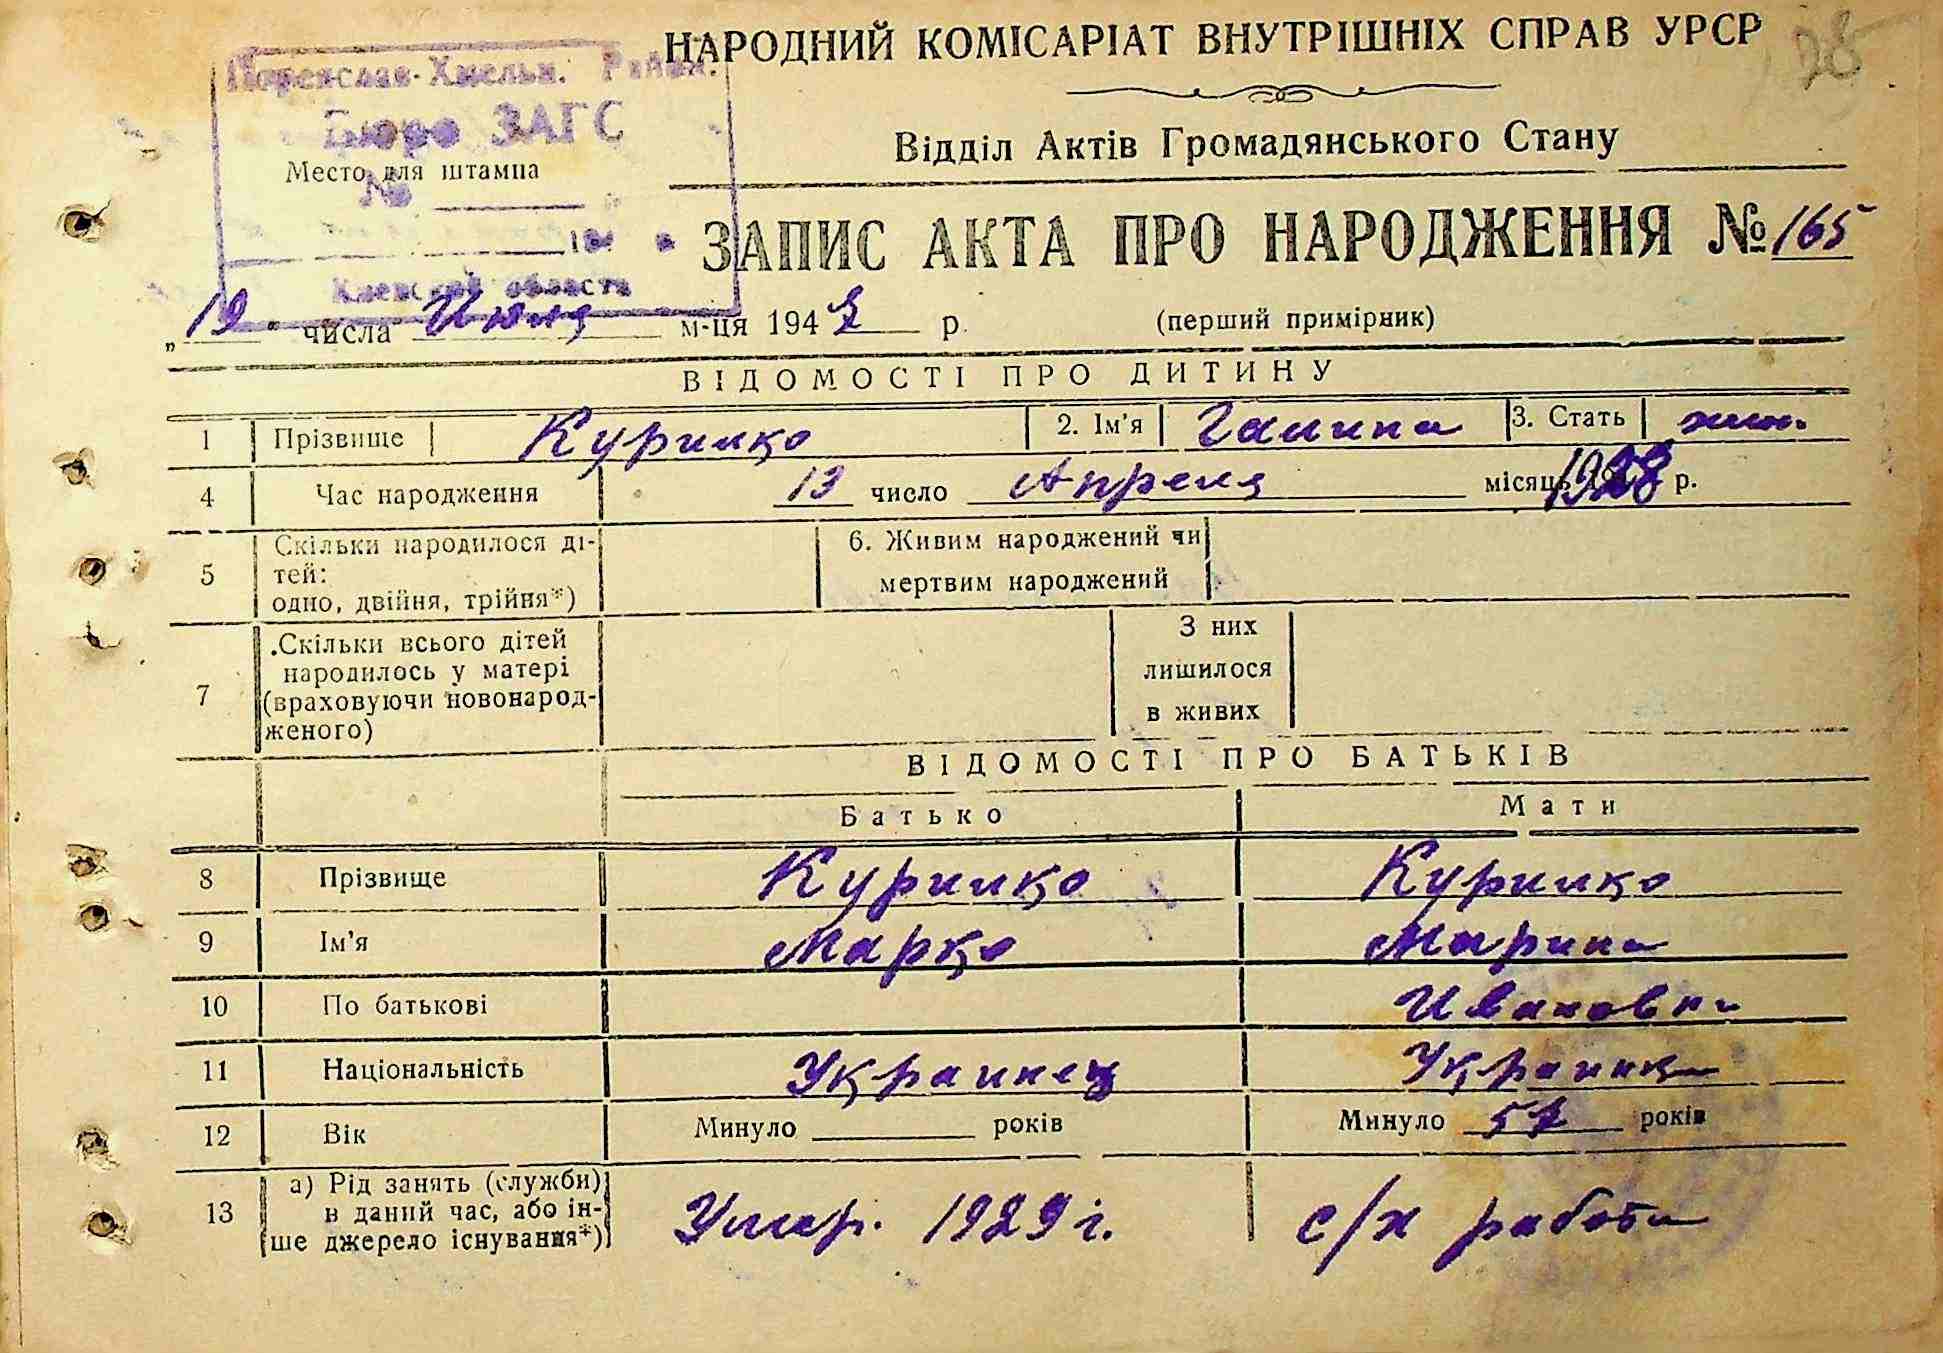 НАРОДНИЙ КОМІСАРІАТ ВНУТРІШНІХ СПРАВ УРСР
28
Переяслав-Хмельн. Район.
Бюро ЗАГС
Место для штампа
№
Киевской области
Відділ Актів Громадянського Стану
ЗАПИС АКТА ПРО НАРОДЖЕННЯ № 165
„19" числа Июля м-ця 1947 р. (перший примірник)
ВІДОМОСТІ ПРО ДИТИНУ
1 Прізвище Курилко 2. Ім'я Галина 3. Стать жін.
4 Час народження 13 число Апреля місяць 1928 р.
5 Скільки народилося ді-
тей:
одно, двійня, трійня*)
6. Живим народжений чи
мертвим народжений
7 Скільки всього дітей
народилось у матері
(враховуючи новонарод-
женого)
З них
лишилося
в живих
ВІДОМОСТІ ПРО БАТЬКІВ
Батько Мати
8 Прізвище Курилко Курилко
9 Ім'я Марко Марина
10 По батькові Ивановна
11 Національність Украинец Украинка
12 Вік Минуло років Минуло 57 років
13 а) Рід занять (служби)
в даний час, або ін-
ше джерело існування*)
Умер. 1929 г. с/х работа